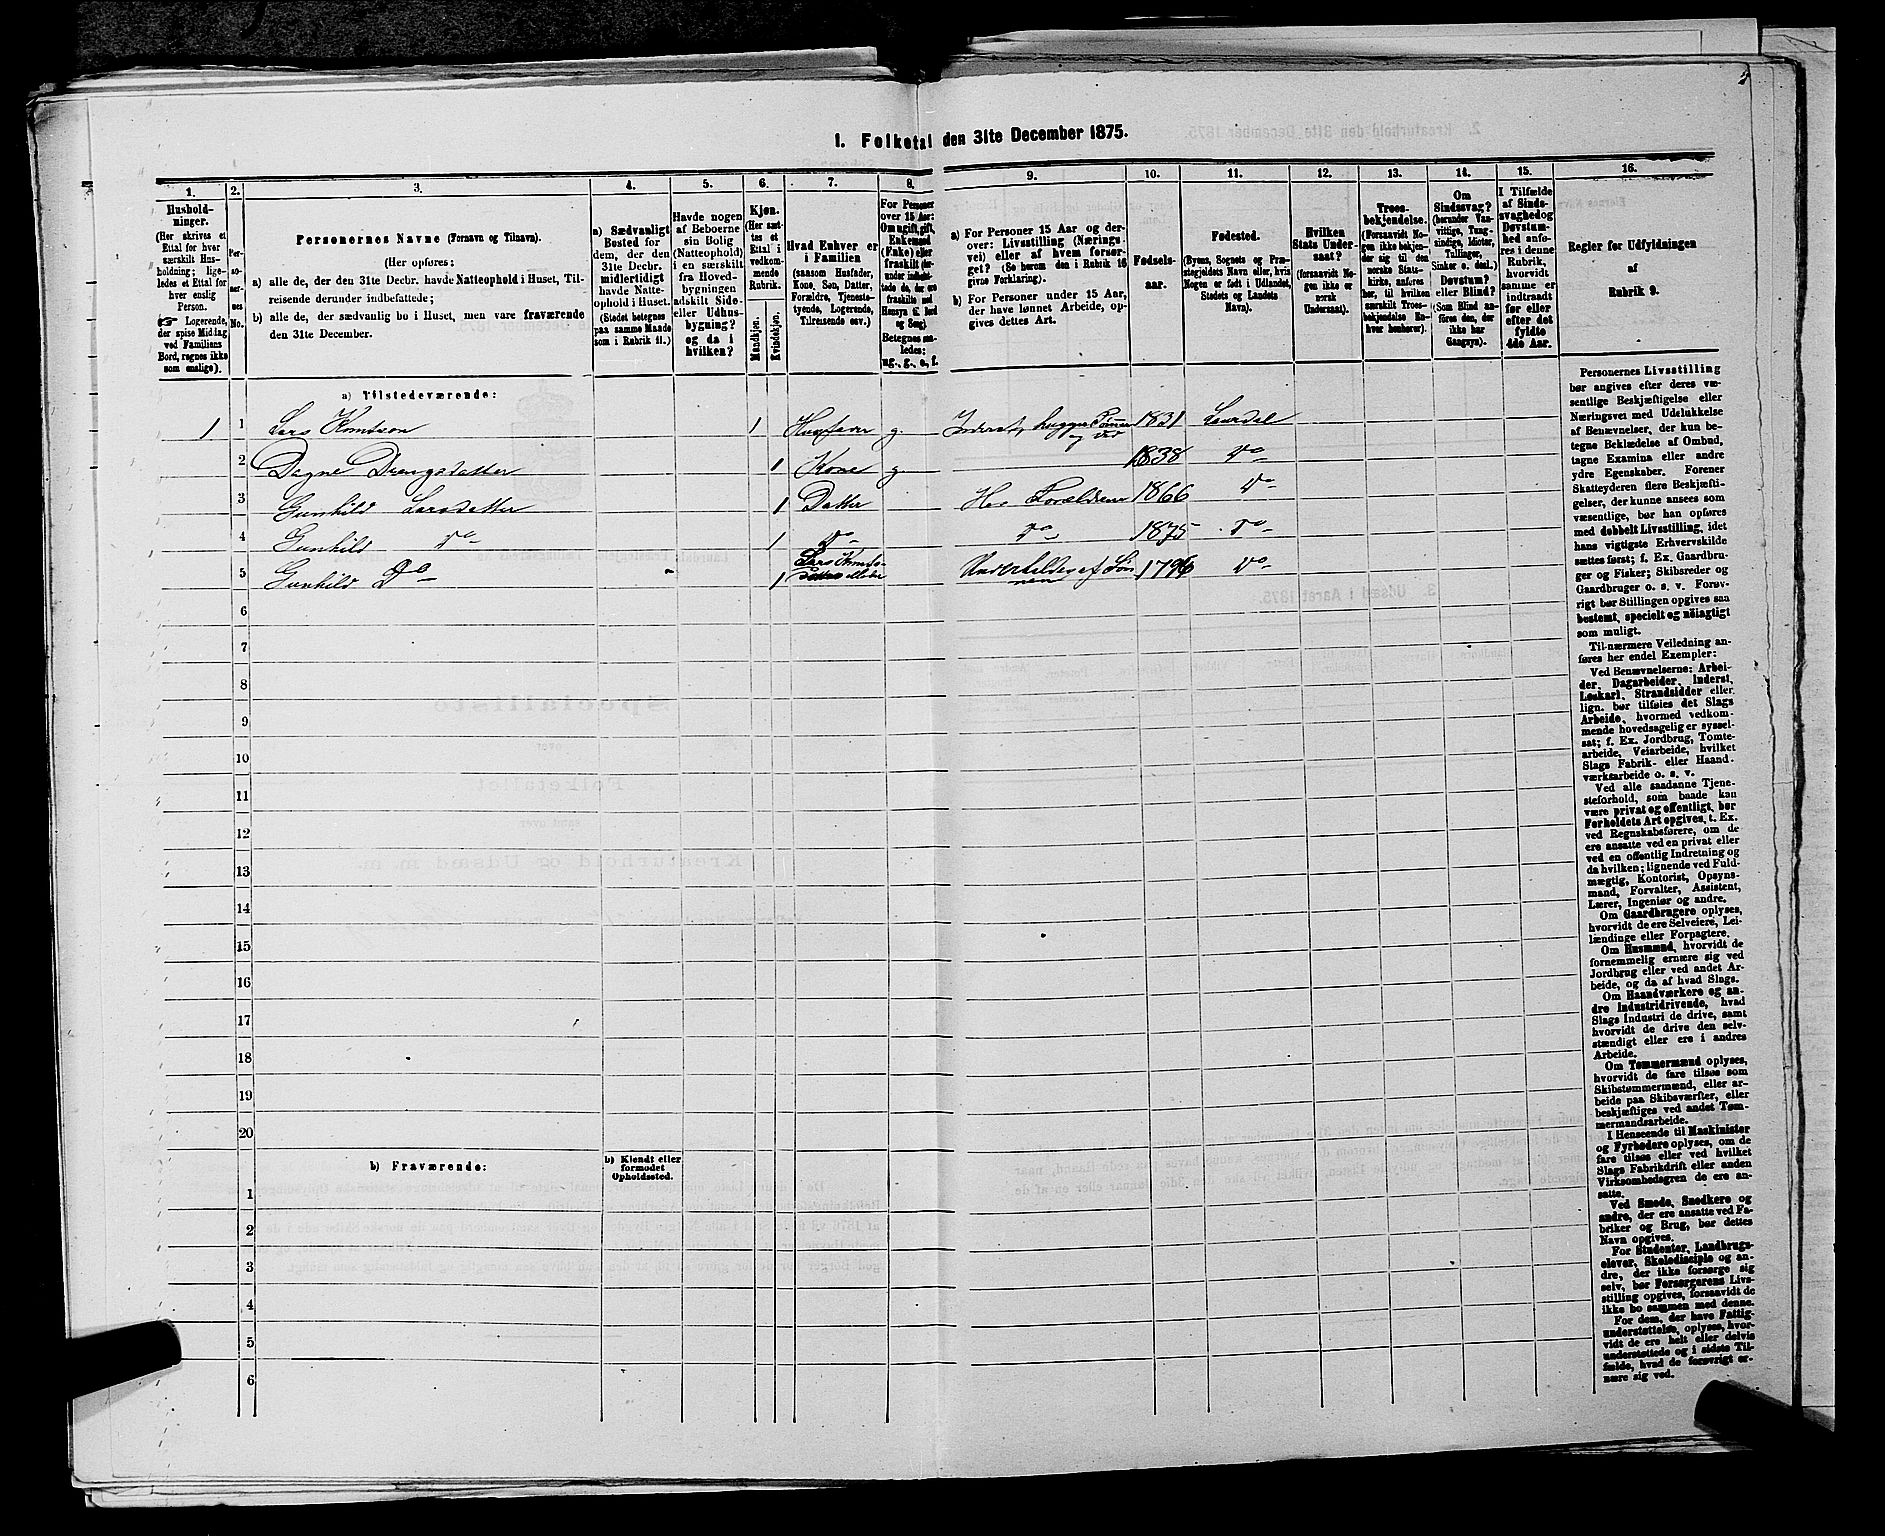 1. Folketal den 31te December 1875.
1. 2. 3. 4. 5. 6. 7. 8. 9. 10. 11. 12. 13. 14. 15. 16.
Hushold-
ninger.
(Her skrives et
Ettal for hver
særskilt Hus-
holdning; lige-
ledes et Ettal for
hver enslig
Person.
☞ Logerende,
der spise Middag
ved Familiens
Bord, regnes ikke
som enslige).
Per-
so-
ner-
nes
No.
Personernes Navne (Fornavn og Tilnavn).
(Her opføres:
a) alle de, der den 31te Decbr. havde Natteophold i Huset, Til-
reisende derunder indbefattede;
b) alle de, der sædvanlig bo i Huset, men vare fraværende
den 31te December.
a) Sædvanligt
Bosted for
dem, der den
31te Decbr.
midlertidigt
havde Natte-
ophold i Huset.
(Stedet betegnes
paa samme Maade
som i Rubrik 11.)
Havde nogen
af Beboerne
sin Bolig
(Natteophold)
i en særskilt
fra Hoved-
bygningen
adskilt Side-
eller Udhus-
bygning?
og da i
hvilken?
Kjøn.
(Her sæt-
tes et
Ettal i
vedkom-
mende
Rubrik.
Mandkjøn.
Kvindekjøn.
Hvad Enhver er
i Familien
(saasom Husfader,
Kone, Søn, Datter,
Forældre, Tjeneste-
tyende, Logerende,
Tilreisende osv.)
For Personer
over 15 Aar:
Om ugift, gift,
Enkemand
(Enke) eller
fraskilt (der-
under indbefat-
tede de, der ere
fraskilte med
Hensyn til Bord
og Seng).
Betegnes saa-
ledes:
ug., g., e., f.
a) For Personer 15 Aar og der-
over: Livsstilling (Nærings-
vei) eller af hvem forsør-
get? (Se herom den i Rubrik 16
givne Forklaring).
b) For Personer under 15 Aar,
der have lønnet Arbeide, op-
gives dettes Art.
Fødsels-
aar.
Fødested.
(Byens, Sognets og Præ-
stegjeldets Navn eller, hvis
Nogen er født i Udlandet,
Stedets og Landets
Navn).
Hvilken
Stats Under-
saat?
(forsaavidt No-
gen ikke er
norsk
Undersaat).
Troes-
bekjendelse.
(Forsaavidt No-
gen ikke bekjen-
der sig til den
norske Stats-
kirke, anføres
her, til hvilken
særskilt Troes-
bekjendelse En-
hver henhører).
Om
Sindssvag?
(herunder Van-
vittige, Tung-
sindige, Idioter,
Tullinger,
Sinker o. desl.)
Døvstum?
eller Blind?
(Som Blind an-
føres den, der
ikke har
Gangsyn).
I Tilfælde
af Sinds-
svaghed og
Døvstum-
hed anfø-
res i denne
Rubrik,
hvorvidt
samme er
indtraadt
før eller
efter det
fyldte
4de Aar.
Regler for Udfyldningen
af
Rubrik 9.
a) Tilstedeværende:
1 1 Lars Komtson 1 Husfader g. Inderst, hugger Tømmer og Ved 1831 Laurdal
2 Dagne Drengsdatter 1 Kone g 1838 Do
3 Gunhild Larsdatter 1 Datter Hos Forældrene 1866 Do
4 Gunhild Do 1 Do Do 1875 Do
5 Gunhild Do 1 Lars Underholdes af Søn-
nen 1796 Do
6
7
8
9
10
11
12
13
14
15
16
17
18
19
20
b) Fraværende:
b) Kjendt eller
formodet
Opholdssted.
1
2
3
4
5
6
Personernes Livsstilling
bør angives efter deres væ-
sentlige Beskjæftigelse eller
Næringsvei med Udelukkelse
af Benævnelser, der kun be-
tegne Beklædelse af Ombud,
tagne Examina eller andre
ydre Egenskaber. Forener
Skatteyderen flere Beskjæfti-
gelser, der kunne ansees som
væsentlige, bør han opføres
med dobbelt Livsstilling, idet
hans vigtigste Erhvervskilde
sættes først; f. Ex. Gaardbru-
ger og Fisker; Skibsreder og
Gaardbruger o. s. v. Forøv-
rigt bør Stillingen opgives saa
bestemt, specielt og nøiagtigt
som muligt.
Til nærmere Veiledning an-
føres her endel Exempler:
Ved Benævnelserne: Arbei-
der, Dagarbeider, Inderst,
Løskarl, Strandsidder eller
lign. bør tilføies det Slags
Arbeide, hvormed vedkom-
mende hovedsagelig er syssel-
sat; f. Ex. Jordbrug, Tomte-
arbeide, Veiarbeide, hvilket
Slags Fabrik- eller Haand-
værksarbeide o. s. v.
Ved alle saadanne Tjene-
steforhold, som baade kan
være privat og offentligt, bør
Forholdets Art opgives, t. Ex.
ved Regnskabsførere, om de
ere ansatte ved en privat eller
ved en offentlig Indretning og
da hvilken; lignende ved Fuld-
mægtig, Kontorist, Opsyns-
mand, Forvalter, Assistent,
Lærer, Ingeniør og andre.
Om Gaardbrugere oplyses,
hvorvidt de ere Selveiere, Lei-
lændinge eller Forpagtere.
Om Husmænd, hvorvidt de
fornemmelig ernære sig ved
Jordbrug eller ved andet Ar-
beide, og da af hvad Slags.
Om Haandværkere og an-
dre Industridrivende, hvad
Slags Industri de drive, samt
hvorvidt de drive den selv-
stændigt eller ere i andres
Arbeide.
Om Tømmermænd oplyses,
hvorvidt de fare tilsøs som
Skibstømmermænd, eller ar-
beide paa Skibsværfter, eller
beskjæftiges ved andet Tøm-
mermandsarbeide.
I Henseende til Maskinister
og Fyrbødere oplyses, om de
fare tilsøs eller ved hvilket
Slags Fabrikdrift eller anden
Virksomhedsgren de ere an-
satte.
Ved Smede, Snedkere og
andre, der ere ansatte ved Fa-
briker og Brug, bør dettes
Navn opgives.
For Studenter, Landbrugs-
elever, Skoledisciple og an-
dre, der ikke forsørge sig
selv, bør Forsørgerens Livs-
stilling opgives, forsaavidt de
ikke bo sammen med denne.
For dem, der have Fattig-
understøttelse, oplyses, hvor-
vidt de ere helt eller delvis
understøttede og i sidste Til-
fælde, hvad de forøvrigt er-
nære sig ved.